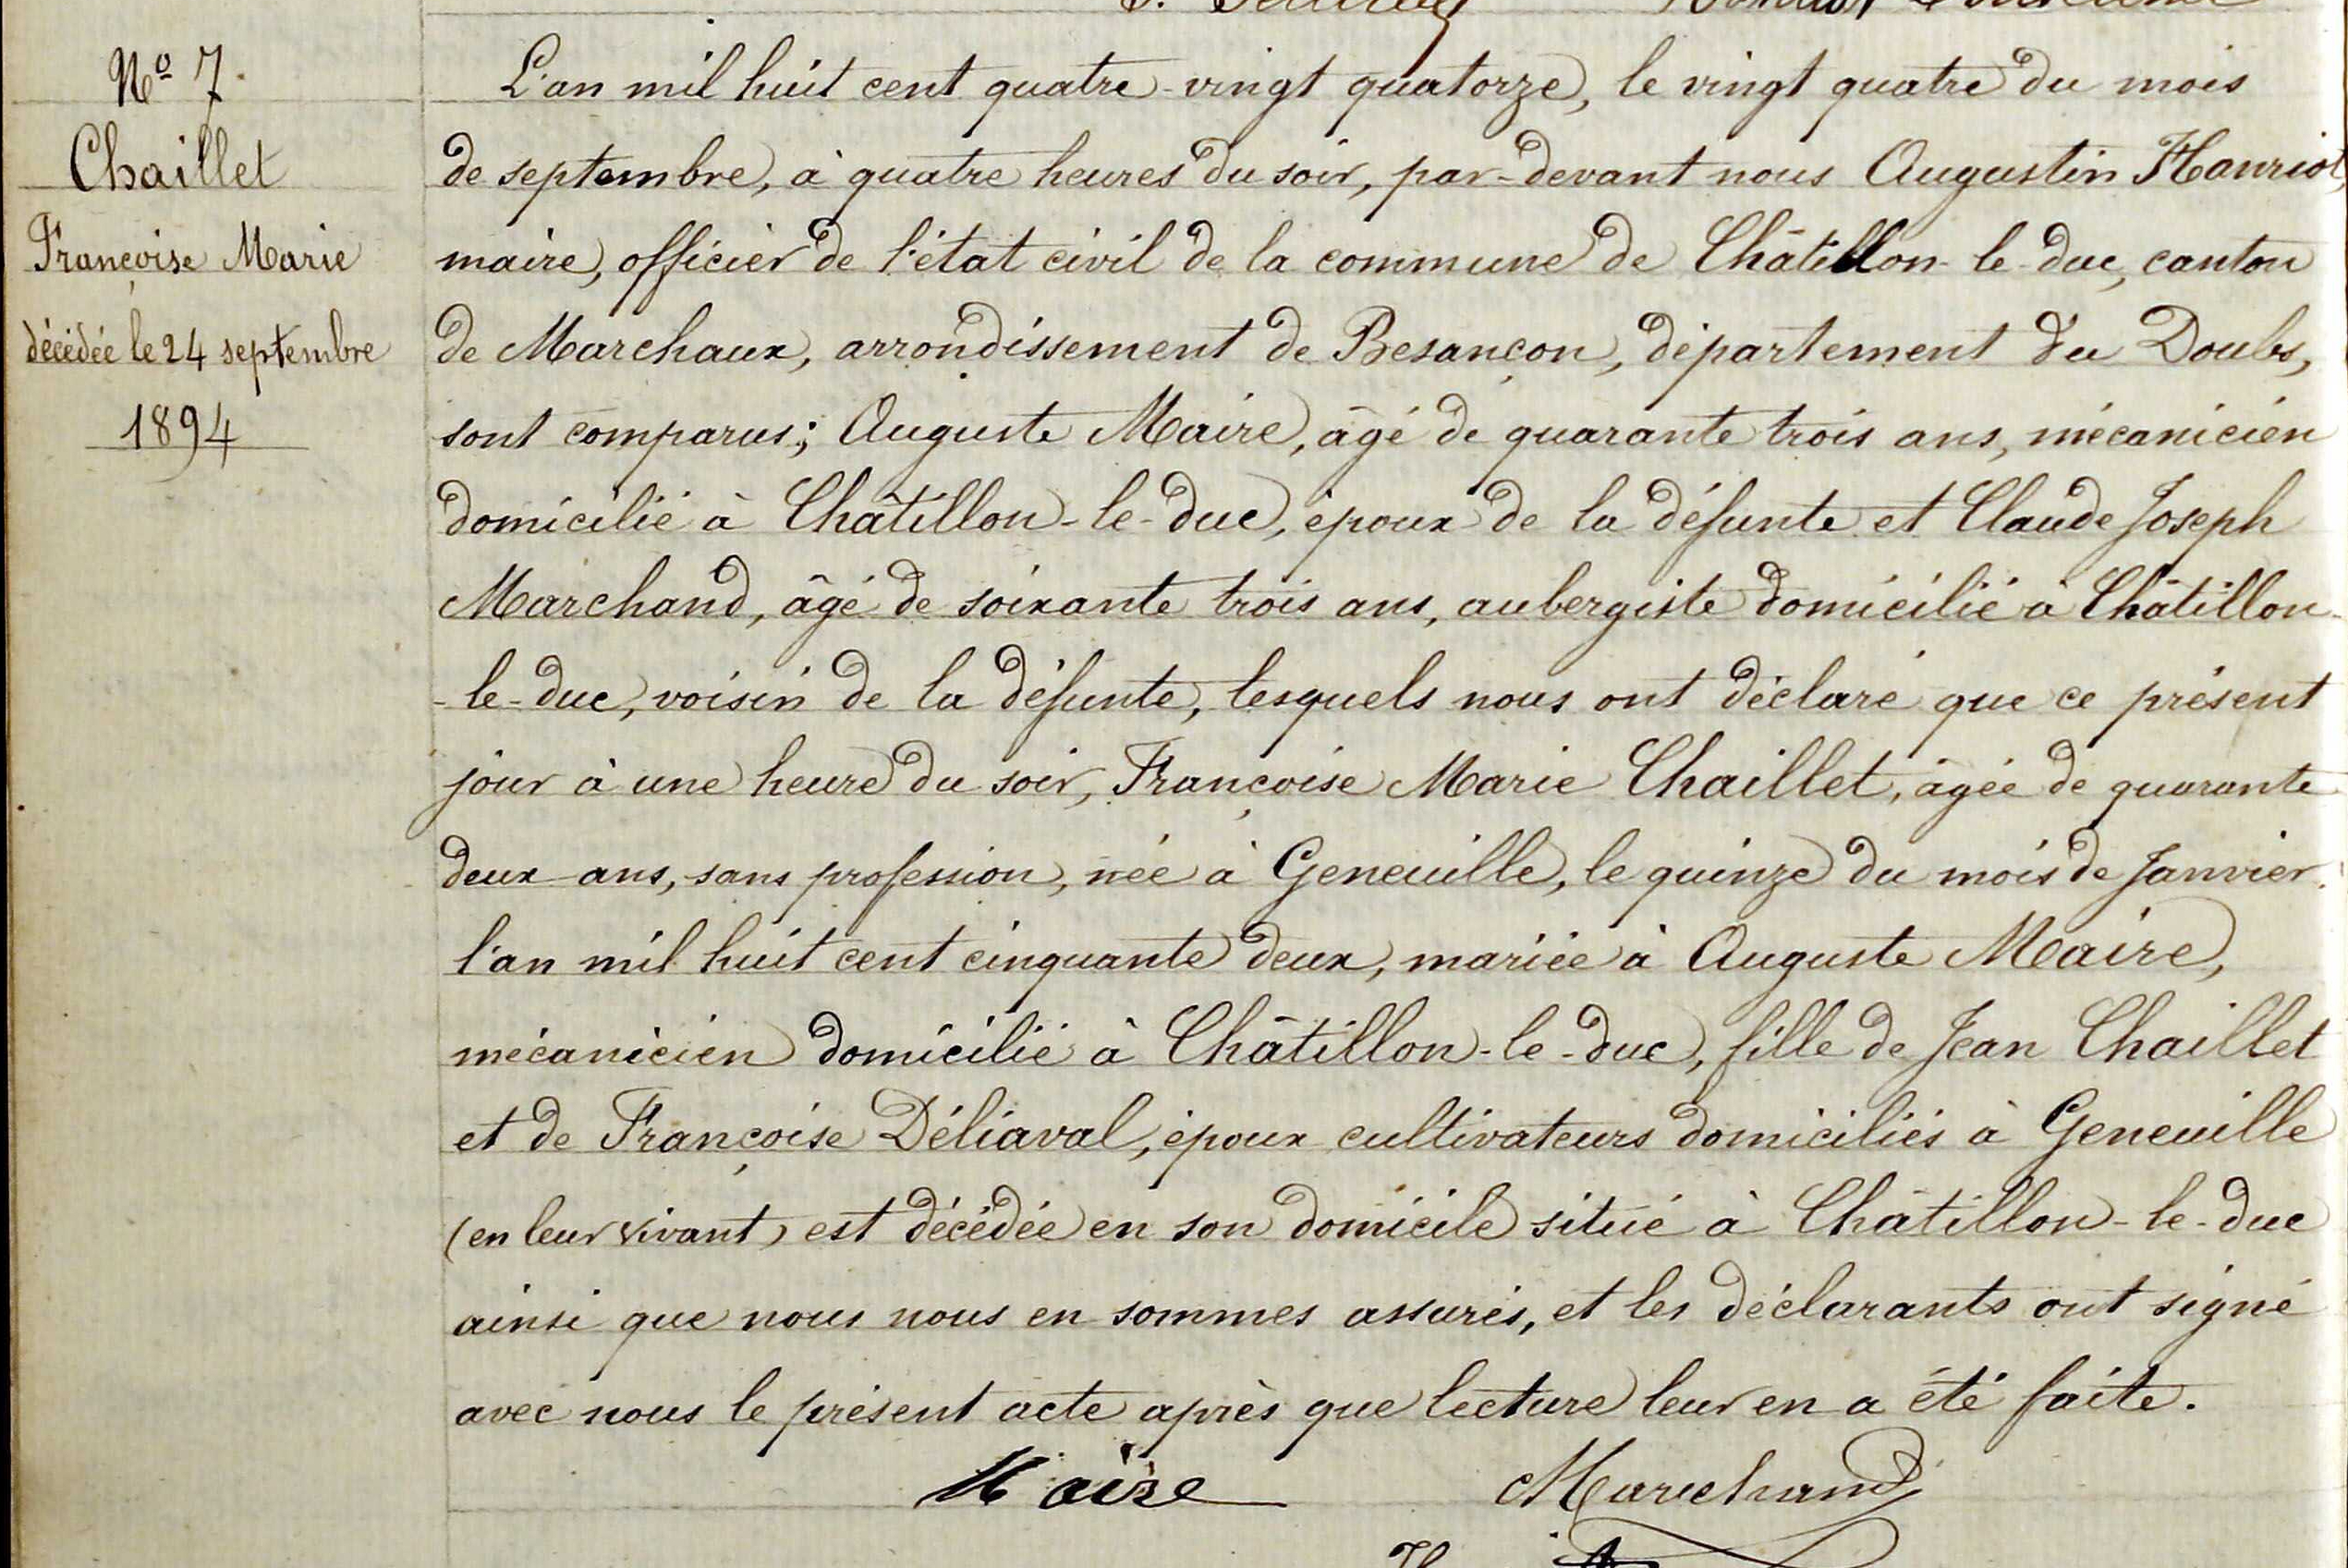 Nº 7.
Chaillet
Françoise Marie
décédée le 24 septembre
1894
L'an mil huit cent quatre-vingt quatorze, le vingt quatre du mois
de septembre, à quatre heures du soir, par-devant nous Augustin Hanriot,
maire, officier de l'état civil de la commune de Châtillon-le-duc, canton
de Marchaux, arrondissement de Besançon, département du Doubs,
sont comparus; Auguste Maire, âgé de quarante trois ans, mécanicien
domicilié à Châtillon-le-duc, époux de la défunte et Claude Joseph
Marchand, âgé de soixante trois ans, aubergiste domicilié à Châtillon-
-le-duc, voisin de la défunte, lesquels nous ont déclaré que ce présent
jour à une heure du soir, Françoise Marie Chaillet, âgée de quarante
deux ans, sans profession, née à Geneuille, le quinze du mois de Janvier
l'an mil huit cent cinquante deux, mariée à Auguste Maire,
mécanicien domicilié à Châtillon-le-duc, fille de Jean Chaillet
et de Françoise Déliaval, époux cultivateurs domiciliés à Geneuille
(en leur vivant) est décédée en son domicile situé à Châtillon-le-duc
ainsi que nous nous en sommes assurés, et les déclarants ont signé
avec nous le présent acte après que lecture leur en a été faite.
Maire Marchand